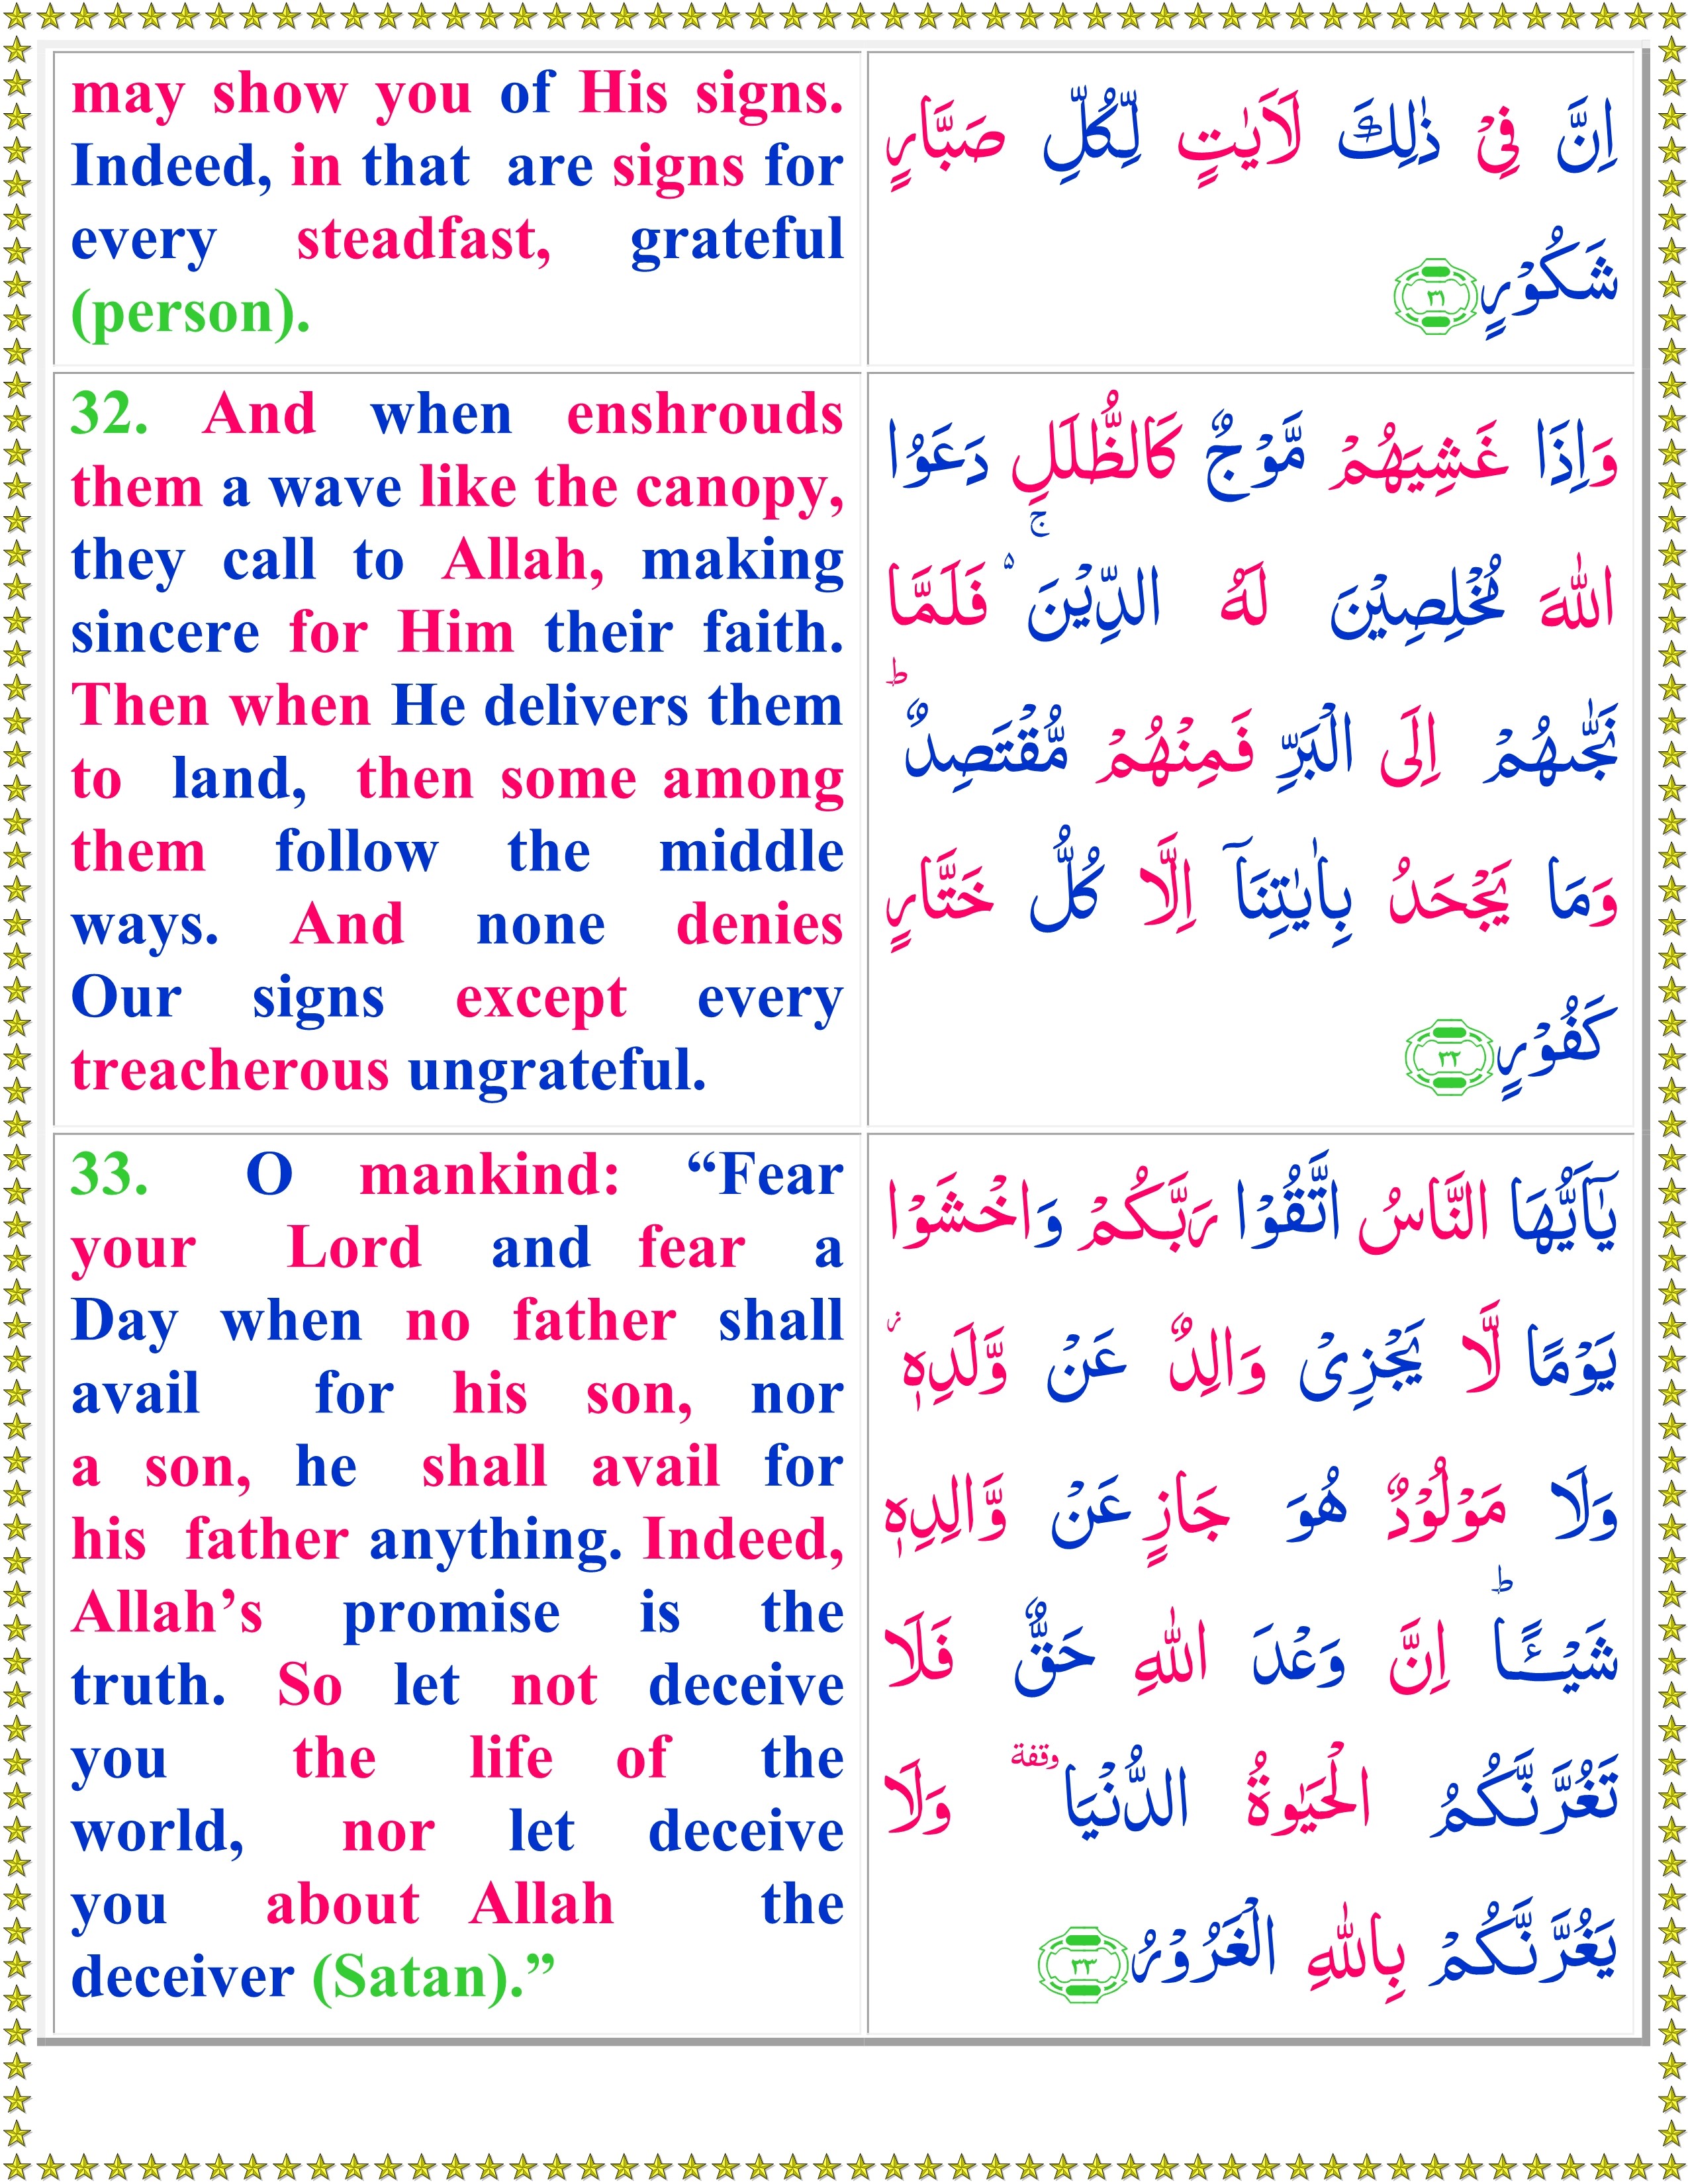 may show you of His signs.
Indeed, in that are signs for
every steadfast, grateful
(person).
اِنَّ فِىْ ذٰلِكَ لَاَيٰتٍ لِّكُلِّ صَبَّارٍ
شَكُوْرٍ ۳۱
32. And when enshrouds
them a wave like the canopy,
they call to Allah, making
sincere for Him their faith.
Then when He delivers them
to land, then some among
them follow the middle
ways. And none denies
Our signs except every
treacherous ungrateful.
وَاِذَا غَشِيَهُمْ مَّوْجٌ كَالظُّلَلِ دَعَوُا
اللّٰهَ مُخْلِصِيْنَ لَهُ الدِّيْنَ ۚ۬ فَلَمَّا
نَجّٰٮهُمْ اِلَى الْبَرِّ فَمِنْهُمْ مُّقْتَصِدٌ ؕ
وَمَا يَجْحَدُ بِاٰيٰتِنَاۤ اِلَّا كُلُّ خَتَّارٍ
كَفُوْرٍ ۳۲
33. O mankind: “Fear
your Lord and fear a
Day when no father shall
avail for his son, nor
a son, he shall avail for
his father anything. Indeed,
Allah’s promise is the
truth. So let not deceive
you the life of the
world, nor let deceive
you about Allah the
deceiver (Satan).”
يٰۤاَيُّهَا النَّاسُ اتَّقُوْا رَبَّكُمْ وَاخْشَوْا
يَوْمًا لَّا يَجْزِىْ وَالِدٌ عَنْ وَّلَدِهٖ ۫
وَلَا مَوْلُوْدٌ هُوَ جَازٍ عَنْ وَّالِدِهٖ
شَيْـــًٔا ؕ اِنَّ وَعْدَ اللّٰهِ حَقٌّ فَلَا
تَغُرَّنَّكُمُ الْحَيٰوةُ الدُّنْيَا وقفة وَلَا
يَغُرَّنَّكُمْ بِاللّٰهِ الْغَرُوْرُ ۳۳